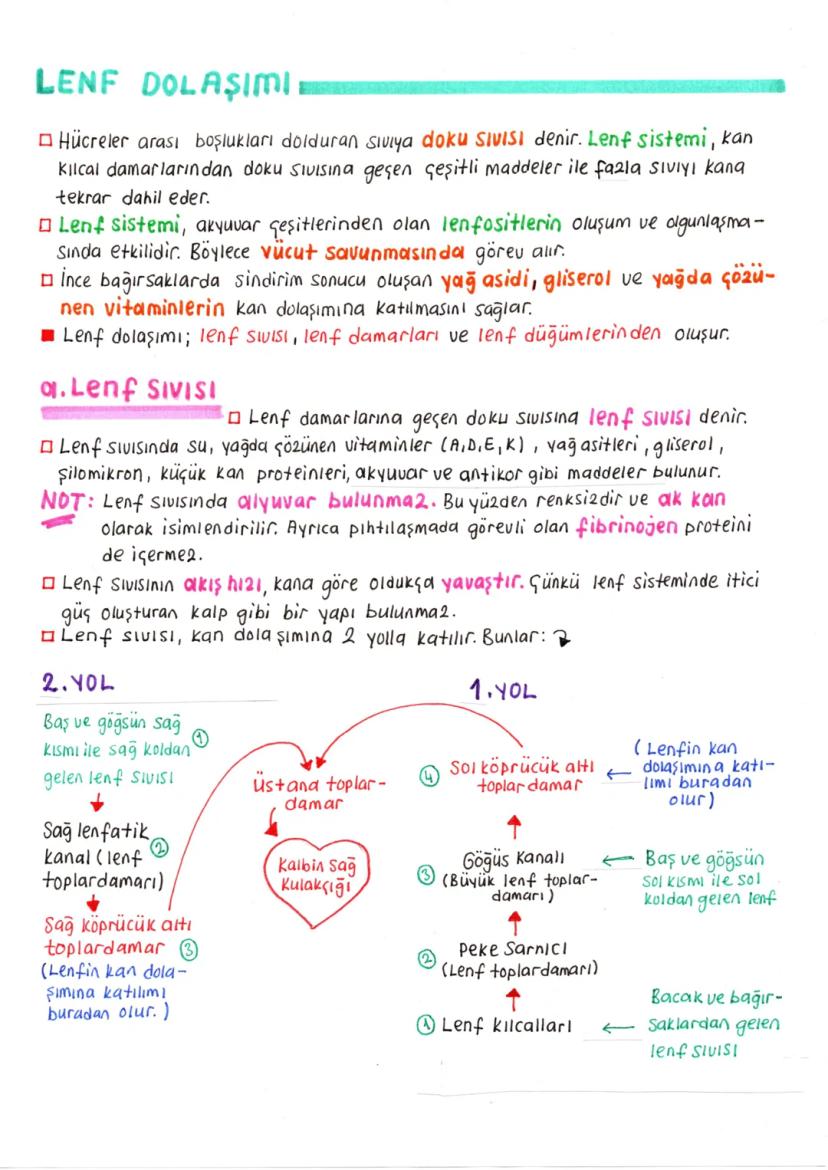 LENF DOLAŞIMI
Hücreler arası boşlukları dolduran sıvıya doku sıvısı denir. Lenf sistemi, kan
kılcal damarlarından doku sıvısına geçen çeşitli maddeler ile fazla sıvıyı kana
tekrar dahil eder.
Lenf sistemi, akyuvar çeşitlerinden olan lenfositlerin oluşum ve olgunlaşma-
sında etkilidir. Böylece vücut savunmasında görev alır.
İnce bağırsaklarda sindirim sonucu oluşan yağ asidi, gliserol ve yağda çözü-
nen vitaminlerin kan dolaşımına katılmasını sağlar.
Lenf dolaşımı; lenf sıvısı, lenf damarları ve lenf düğümlerinden oluşur.
a. Lenf Sıvısı
Lenf damarlarına geçen doku sıvısına lenf sıvısı denir.
Lenf sıvısında su, yağda çözünen vitaminler (A,D,E,K), yağ asitleri, gliserol,
şilomikron, küçük kan proteinleri, akyuvar ve antikor gibi maddeler bulunur.
NOT: Lenf sıvısında alyuvar bulunmaz. Bu yüzden renksizdir ve ak kan
olarak isimlendirilir. Ayrıca pıhtılaşmada görevli olan fibrinojen proteini
de içermez.
Lenf sıvısının akış hızı, kana göre oldukça yavaştır. Çünkü lenf sisteminde itici
güç oluşturan kalp gibi bir yapı bulunmaz.
Lenf sıvısı, kan dolaşımına 2 yolla katılır. Bunlar:
2. YOL
Baş ve göğsün sağ
kısmı ile sağ koldan
gelen lenf sıvısı
1
Sağ lenfatik
kanal (lenf
toplardamarı)
2
Sağ köprücük altı
toplardamar 3
(Lenfin kan dola-
şımına katılımı
buradan olur.)
Üstana toplar-
damar
Kalbin Sağ
Kulakçığı
1. YOL
4 Sol köprücük altı
toplardamar
(Lenfin kan
dolaşımına katı-
lımı buradan
olur)
3 Göğüs Kanalı
(Büyük lenf toplar-
damarı)
Baş ve göğsün
sol kısmı ile sol
koldan gelen lenf
2 Peke Sarnıcı
(Lenf toplardamarı)
1 Lenf kılcalları
Bacak ve bağır-
saklardan gelen
lenf sıvısı